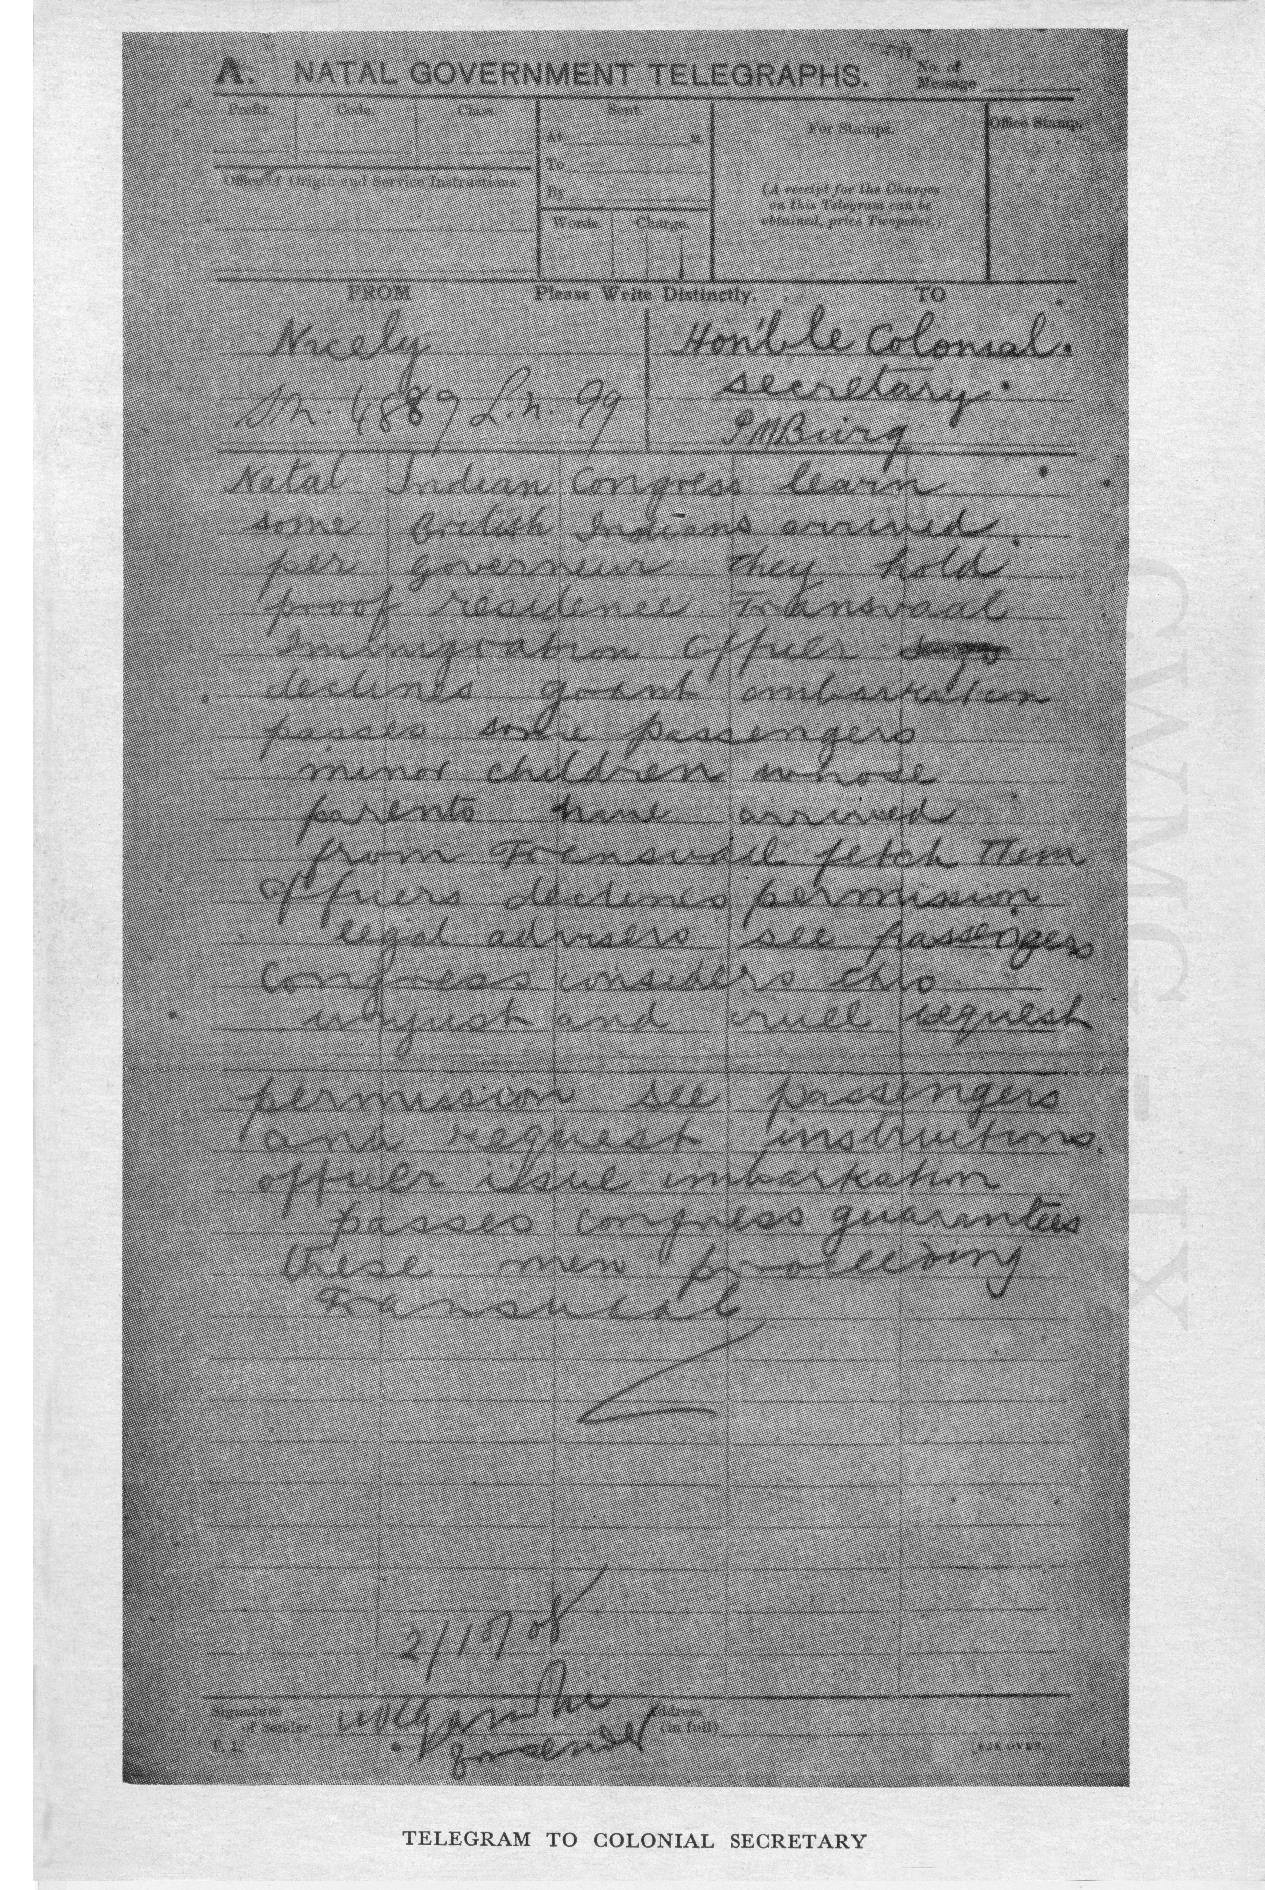 A. NATAL GOVERNMENT TELEGRAPHS.
No. of
Message
Prefix. Code. Class. Sent.
At M.
To
By
Words. Charge.
For Stamps.
Office Stamp.
Office of Origin and Service Instructions.
(A receipt for the Charges
on this Telegram can be
obtained, price Twopence.)
FROM Please Write Distinctly. TO
Nicely
4889 99
Hon'ble Colonial.
secretary.
PMBurg
Natal Indian Congress learn
some British Indians arrived
per governeur they hold
proof residence Transvaal
Immigration officer
declines grant embarkation
passes some passengers
minor children whose
parents have arrived
from Transvaal fetch them
Officers declines permission
legal advisers see passengers
Congress considers this
unjust and cruel request
permission see passengers
and request instructions
officer issue imbarkation
passes congress guarantees
these men proceeding
Transvaal
2/1
Signature
of sender
MKGandhi
for sender
Address
(in full)
TELEGRAM TO COLONIAL SECRETARY
CWMG-IX